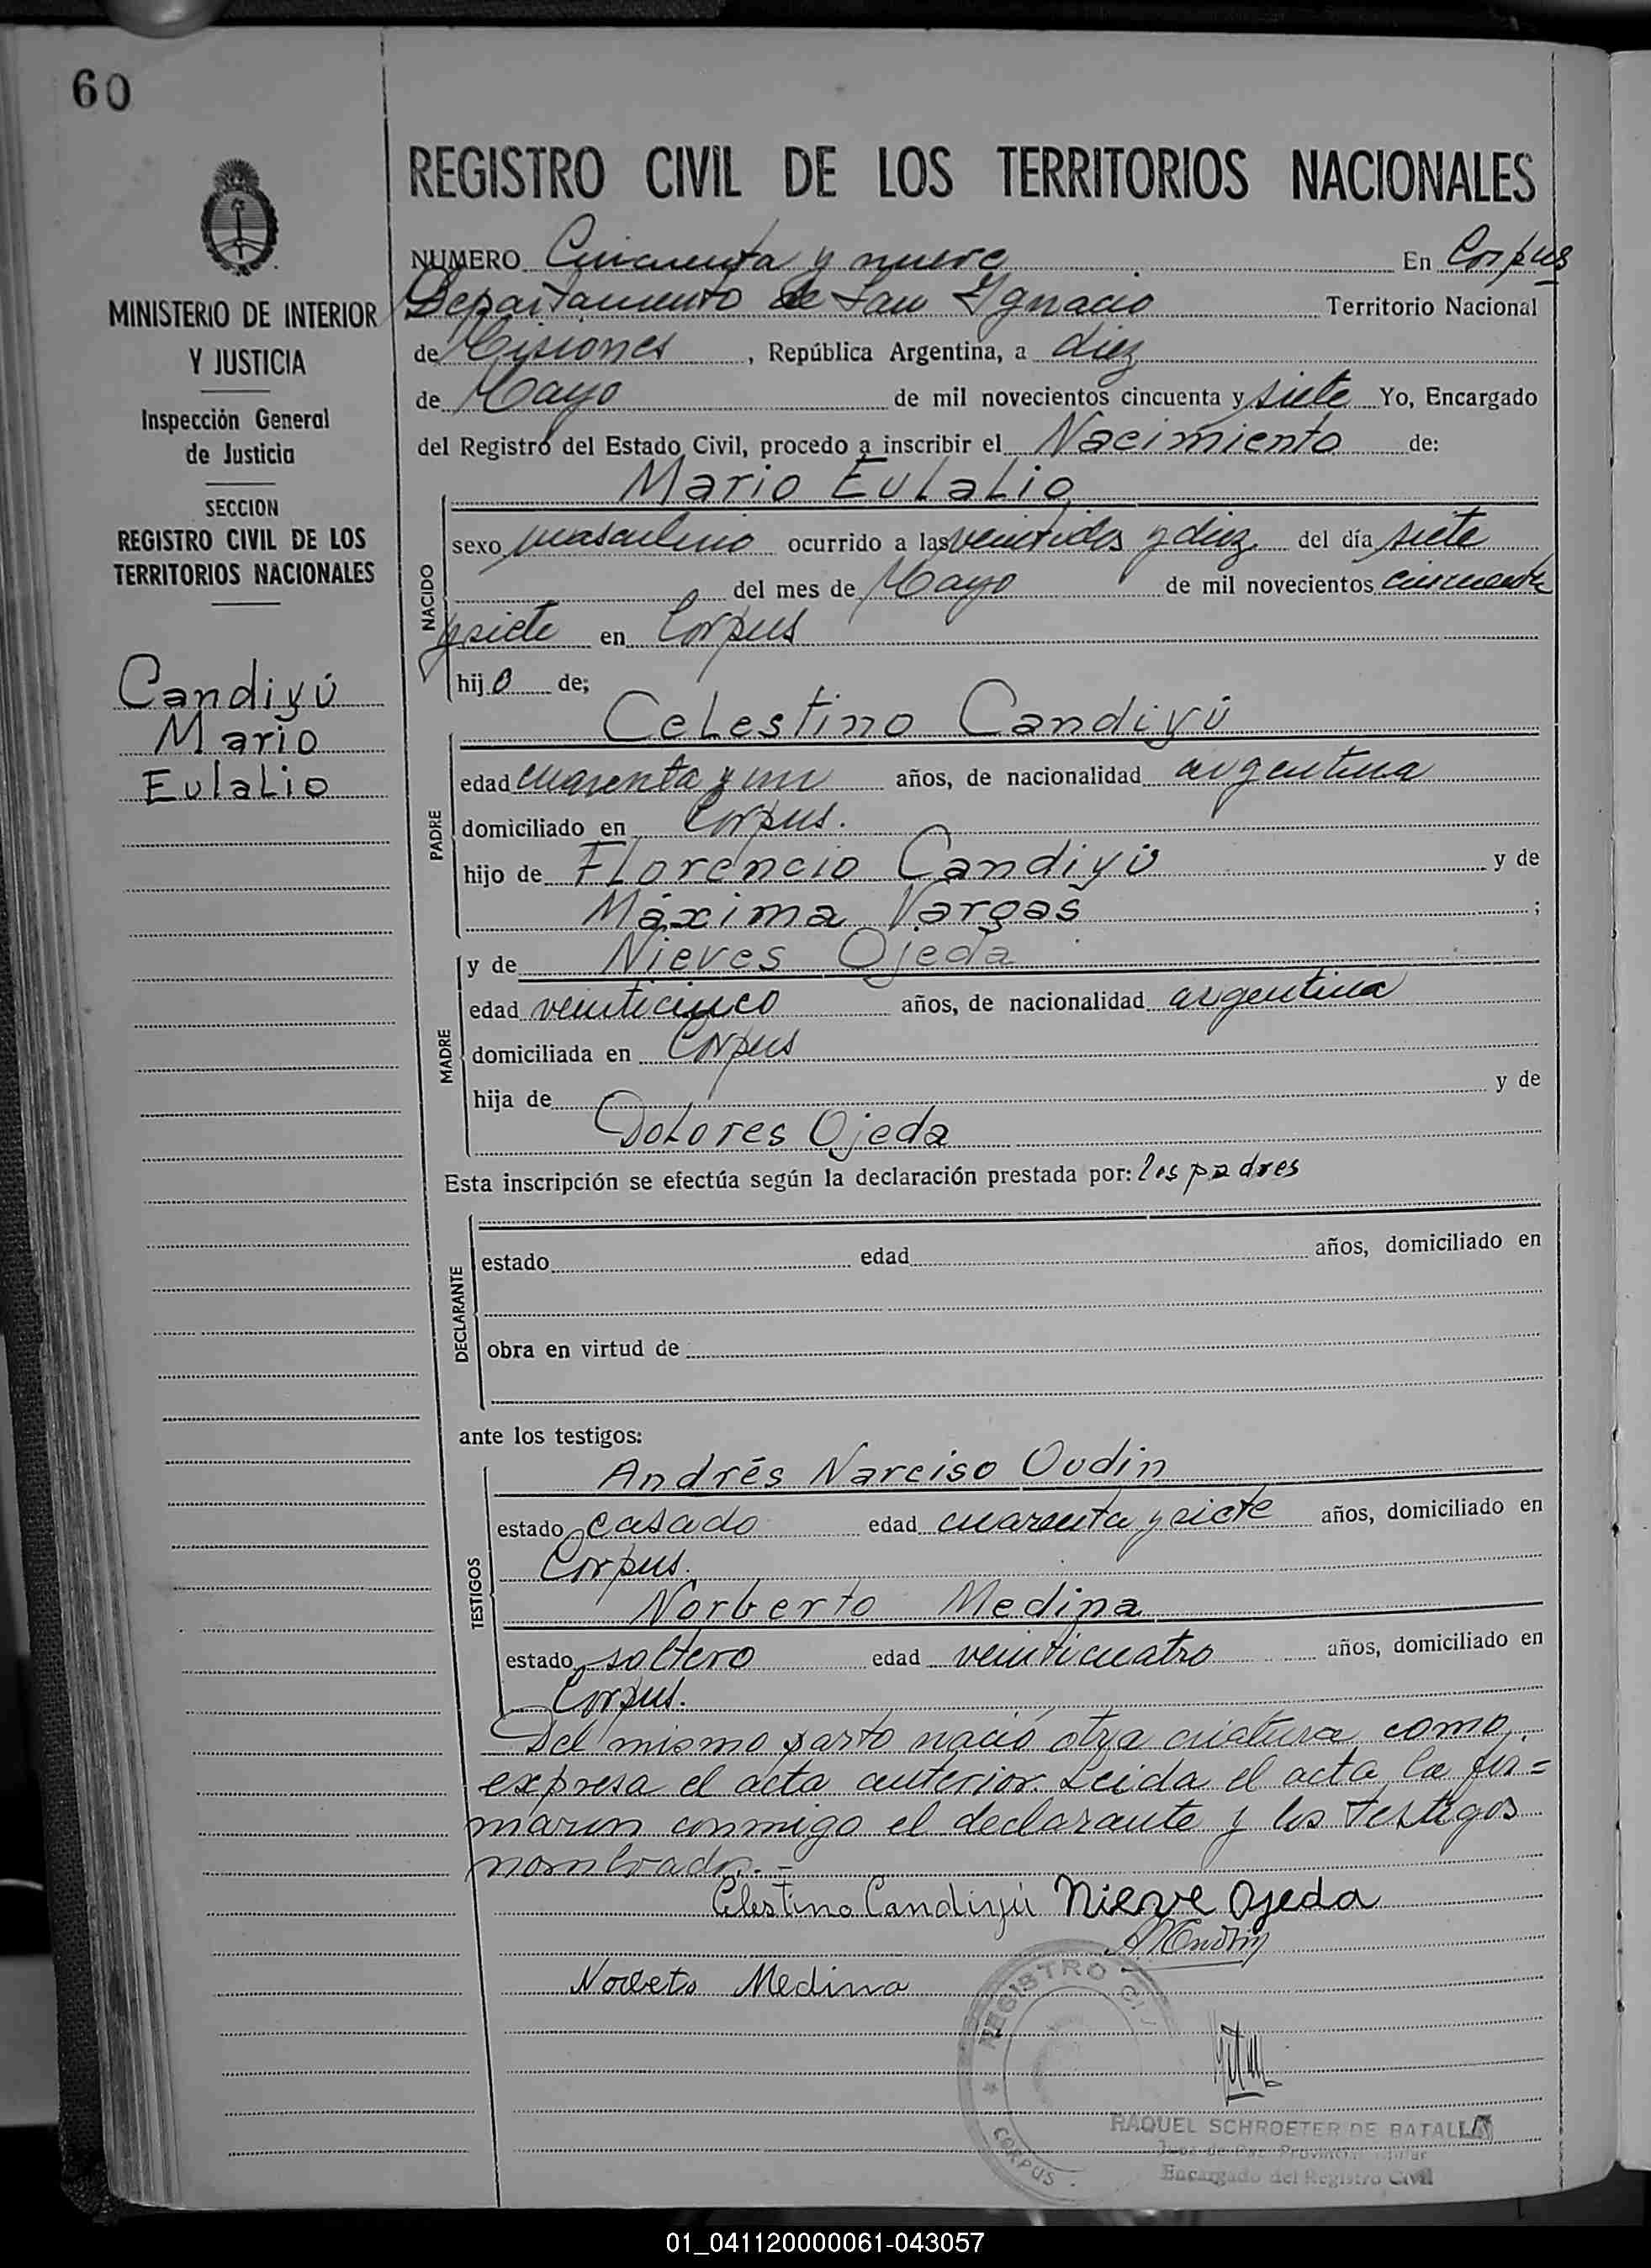 60
REGISTRO CIVIL DE LOS TERRITORIOS NACIONALES
MINISTERIO DE INTERIOR
Y JUSTICIA
Inspección General
de Justicia
SECCION
REGISTRO CIVIL DE LOS
TERRITORIOS NACIONALES
Candiyú
Mario
Eulalio
NUMERO Cincuenta y nueve En Corpus
Departamento de San Ygnacio Territorio Nacional
de Misiones, República Argentina, a diez
de Mayo de mil novecientos cincuenta y siete Yo, Encargado
del Registro del Estado Civil, procedo a inscribir el Nacimiento de:
NACIDO
Mario Eulalio
sexo masculino ocurrido a las veintidos y diez del día siete
del mes de Mayo de mil novecientos cincuenta
y siete en Corpus
hijo de;
PADRE
Celestino Candiyú
edad cuarenta y un años, de nacionalidad argentina
domiciliado en Corpus.
hijo de Florencio Candiyú y de
Máxima Vargas;
MADRE
y de Nieves Ojeda
edad veinticinco años, de nacionalidad argentina
domiciliada en Corpus
hija de y de
Dolores Ojeda
Esta inscripción se efectúa según la declaración prestada por: los padres
DECLARANTE
estado edad años, domiciliado en
obra en virtud de
ante los testigos:
TESTIGOS
Andrés Narciso Oudin
estado casado edad cuarenta y siete años, domiciliado en
Corpus.
Norberto Medina
estado soltero edad veinticuatro años, domiciliado en
Corpus.
Del mismo parto nació otra criatura como
expresa el acta anterior. Leida el acta la fir=
maron conmigo el declarante y los testigos
nombrados.-
Celestino Candiyú Nieve Ojeda
Norbeto Medina
REGISTRO CIVIL
CORPUS
RAQUEL SCHROETER DE BATALLA
Juez de Paz
Encargado del Registro Civil
01_041120000061-043057